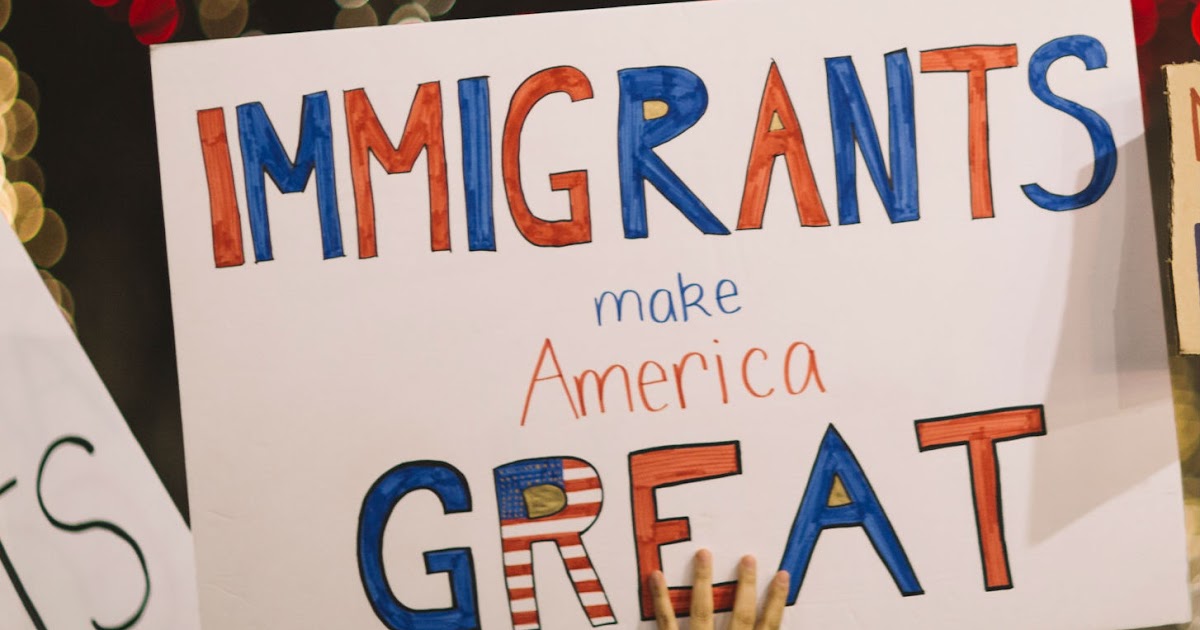 IMMIGRANTS
make
America
GREAT
TS